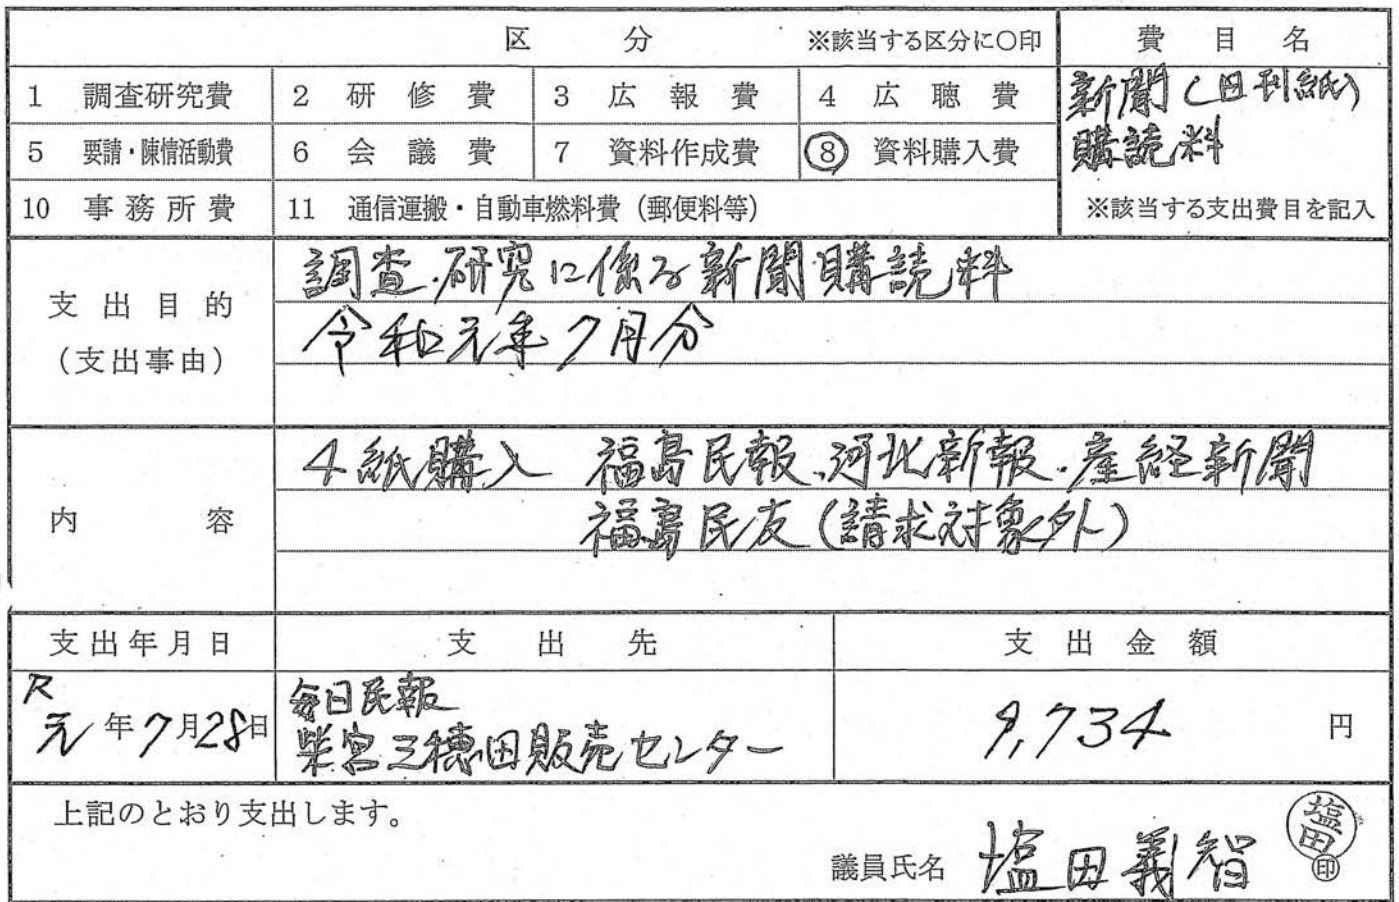 区 分 ※該当する区分に○印
費 目 名
1 調査研究費 2 研 修 費 3 広 報 費 4 広 聴 費
新聞(日刊紙)
5 要請・陳情活動費 6 会 議 費 7 資料作成費 ⑧ 資料購入費
購読料
10 事務所費 11 通信運搬・自動車燃料費（郵便料等）
※該当する支出費目を記入
支出目的
（支出事由）
調査・研究に係る新聞購読料
令和元年7月分
内 容
4紙購入 福島民報、河北新報・産経新聞
福島民友(請求対象外)
支出年月日 支 出 先 支 出 金 額
R
元年7月28日
毎日民報
柴宮三穂田販売センター
9,734 円
上記のとおり支出します。
議員氏名 塩田義智
塩田
印